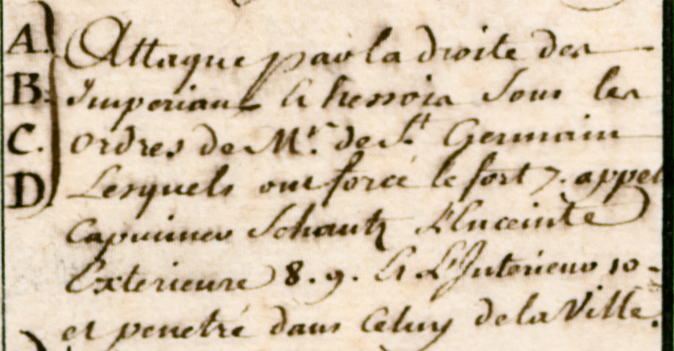 A. Attaque par la droite des
B. Imperiaux & hessois sous les
C. ordres de Mr. de St. Germain
D Lesquels ont forcé le fort 7. appel
Capuciner Schantz L'Enceinte
Exterieure 8. 9. & L'Interieur 10
et penetré dans Celuy de la Ville.